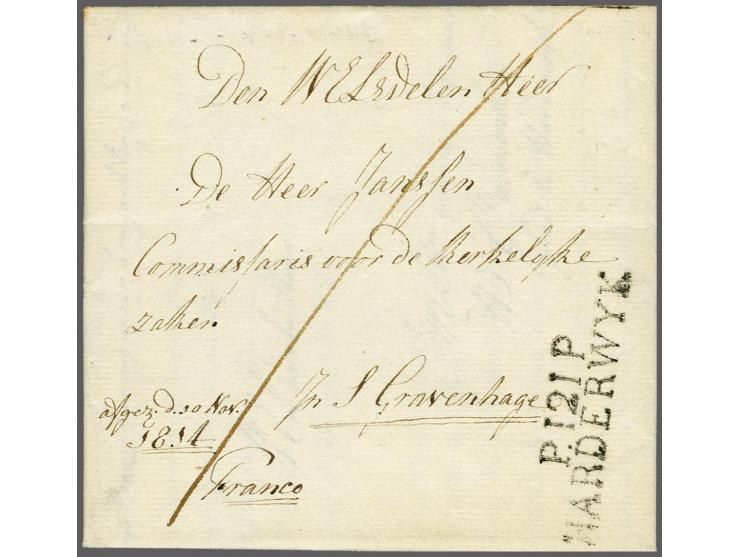 Den WELEdelen Heer
De Heer Janssen
Commissaris voor de Kerkelyke
zaken
In S Gravenhage
afgez. d. 10 Nov.
1814
Franco
P.121.P.
HARDERWYK